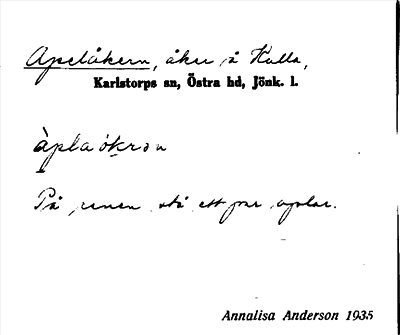 Apelåkern, åker å Kulla,
Karlstorps sn, Östra hd, Jönk. l.
àpla ókrən
På renen stå ett par aplar.
Annalisa Anderson 1935